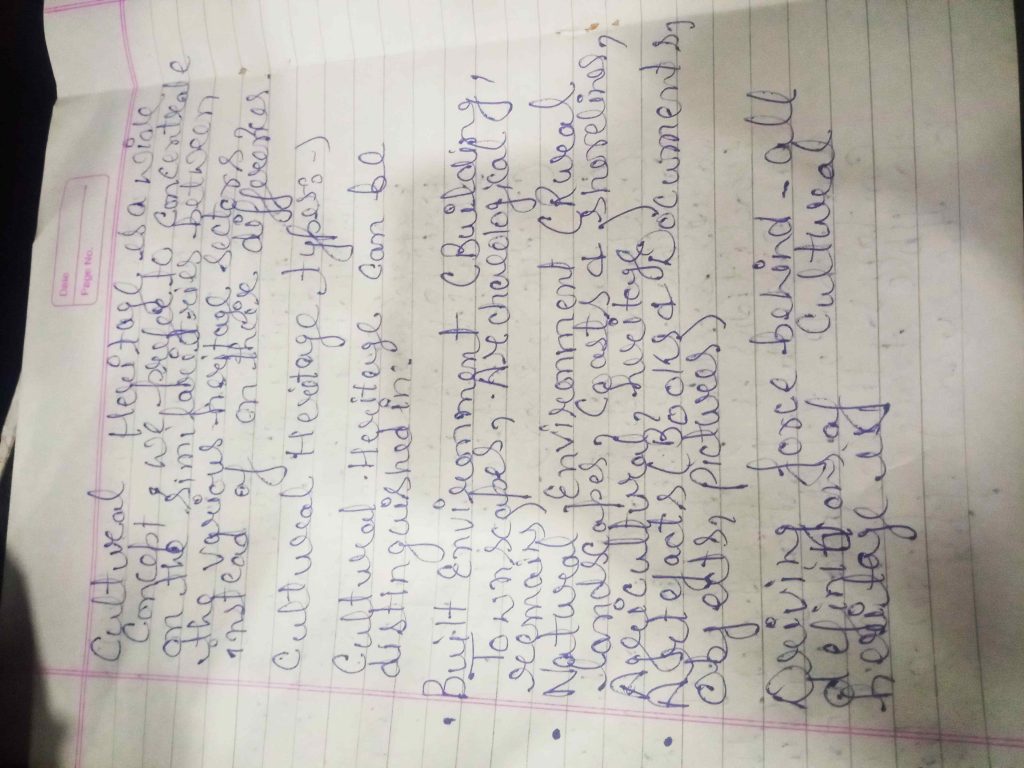 Date
Page No.
Cultural Heritage is a wide
Concept & we prefer to concentrate
on the similarities between
the various heritage sectors
instead of on their differences
Cultural Heritage types:-)
Cultural Heritage can be
distinguished in:
• Built Environment (Building,
Townscapes, Archeological
remains)
• Natural Environment (Rural
landscapes, Coasts & Shorelines,
Agricultural, heritage)
• Artefacts (Books & Documents,
Objects, Pictures)
Driving force behind all
definitions of Cultural
heritage is;